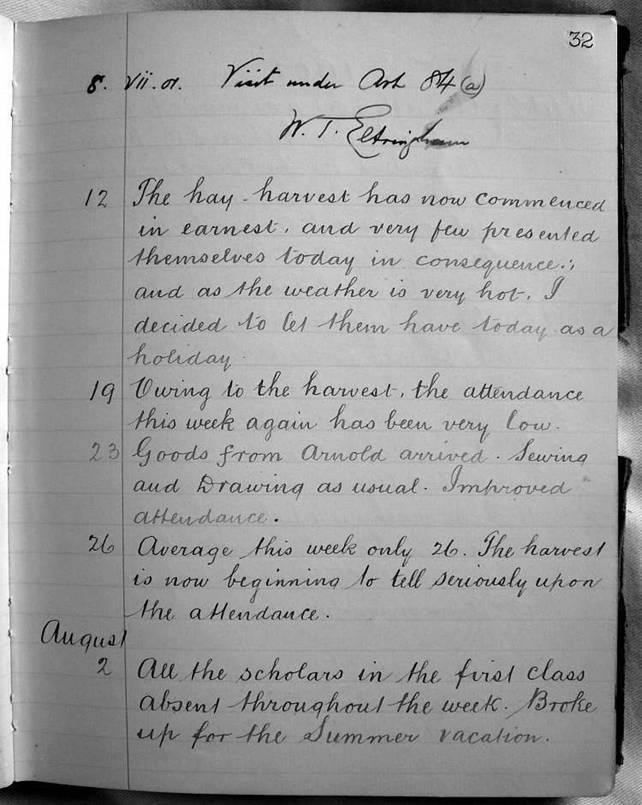 32
8. vii. 01. Visit under Art 84 (a)
W. T. Eltringham
12 The hay-harvest has now commenced
in earnest, and very few presented
themselves today in consequence;
and as the weather is very hot, I
decided to let them have today as a
holiday.
19 Owing to the harvest, the attendance
this week again has been very low.
23 Goods from Arnold arrived. Sewing
and Drawing as usual. Improved
attendance.
26 Average this week only 26. The harvest
is now beginning to tell seriously upon
the attendance.
August
2 All the scholars in the first class
absent throughout the week. Broke
up for the Summer vacation.